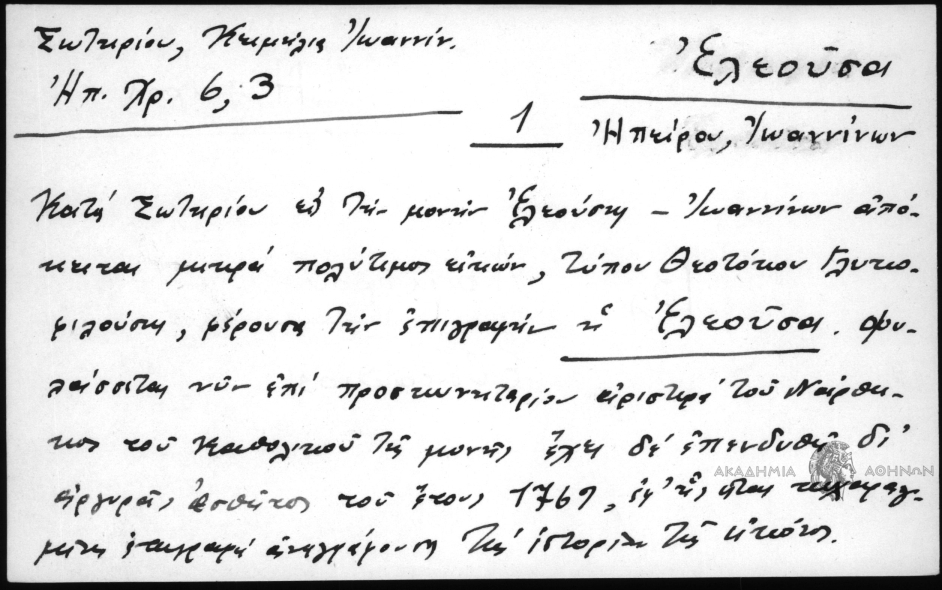 Σωτηρίου, Κειμήλια Ἰωαννίν.
Ἠπ. Χρ. 6, 3
Ἐλεοῦσα
1
Ἠπείρου, Ἰωαννίνων
Κατά Σωτηρίου εἰς τήν μονήν Ἐλεούσης – Ἰωαννίνων ἀπό-
κειται μικρά πολύτιμος εἰκών, τύπου Θεοτόκου Γλυκο-
φιλούσης, φέρουσα τήν ἐπιγραφήν ἡ Ἐλεοῦσα. φυ-
λάσσεται νῦν ἐπί προσκυνηταρίου ἀριστερά τοῦ Νάρθη-
κος τοῦ καθολικοῦ τῆς μονῆς ἔχει δέ ἐπενδυθῆ δι'
ἀργυρᾶς ἐσθῆτος τοῦ ἔτους 1769, ἐφ' ἧς εἶναι κεχαραγ-
μένη ἐπιγραφή ἀναγράφουσα τήν ἱστορίαν τῆς εἰκόνος.
ΑΚΑΔΗΜΙΑ ΑΘΗΝΩΝ